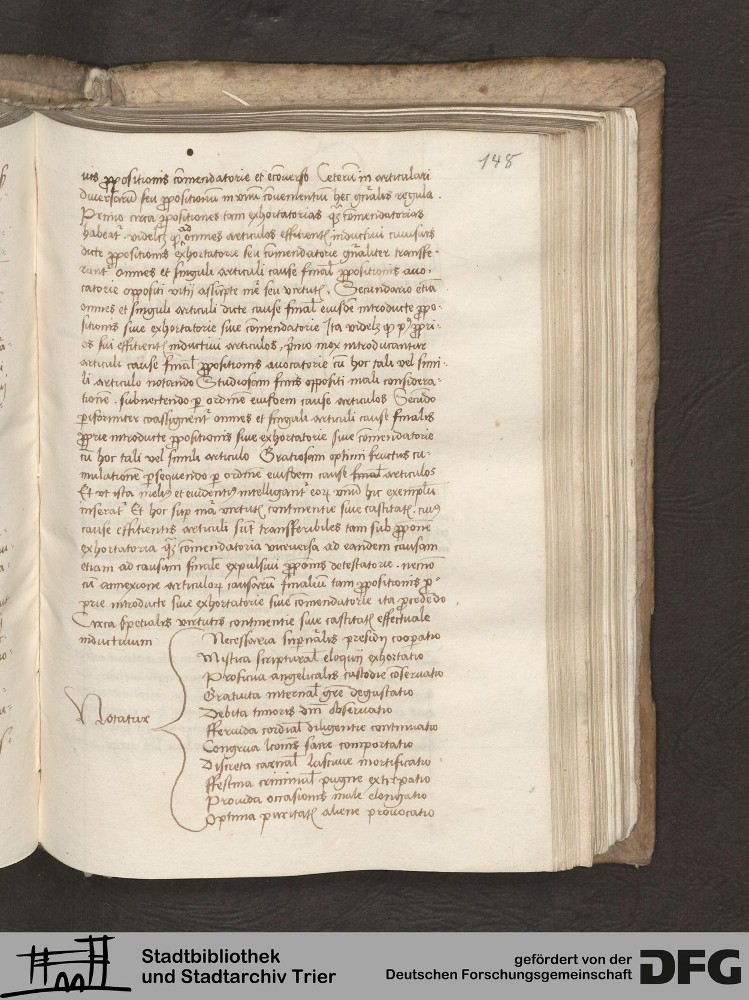 148
uis propositionis comendatorie et econverso Ceterum in articulari
diversarum seu propositionum in unum convenientium hec generalis regula.
Primo circa propositiones tam exhortatorias quam comendatorias
habeatur. videlicet quod ad omnes articulos efficientis inductivi cuiusvis
dicte propositionis exhortatorie seu comendatorie generaliter transfe-
rantur omnes et singuli articuli cause finalis propositionis avo-
catorie oppositi vitii Secundario etiam
omnes et singuli articuli dicte cause finalis eiusdem introducte propo-
sitionis sive exhortatorie sive comendatorie Ita videlicet quod propri-
os sui efficientis inductivi articulos, primo mox introducantur
articuli cause finalis propositionis avocatorie cum hoc tali vel simi-
li articulo notando Studiosam finis oppositi mali considera-
tionem. subnectendo per ordinem eiusdem cause articulos Secundo
pariformiter coassignentur omnes et singuli articuli cause finalis
proprie introducte propositionis sive exhortatorie sive comendatorie
cum hoc tali vel simili articulo Gratiosam optimi fructus cu-
mulationem prosequendo per ordinem eiusdem cause finalis articulos
Et ut ista melius et evidentius intelligantur eorum unum hic exemplum
inseratur Et hoc super materia virtutis continentie sive castitatis. cuius
cause efficientis articuli sunt transferibiles tam sub propositione
exhortatoria quam comendatoria viceversa ad eandem causam
etiam ad causam finalem expulsivi propositionis detestatorie.
cum annexione articulorum causarum finalium tam propositionis pro-
prie introducte sive exhortatorie sive comendatorie ita procedendo
Circa specialis virtutis continentie sive castitatis effectuale
inductivum
Notatur
Necessaria supernalis presidii cooperatio
Mistica scripturalis eloquii exhortatio
Proficua angelicalis custodie conservatio
Gratuita internalis gratie degustatio
Debita timoris domini observatio
Ffervida cordialis diligentie continuatio
Congrua hominis sane comportatio
Discreta carnalis lascivie mortificatio
Ffestina criminalis pugne extirpatio
Provida occasionis male elongatio
Optima puritatis aliene provocatio
Stadtbibliothek
und Stadtarchiv Trier
gefördert von der
Deutschen Forschungsgemeinschaft
DFG